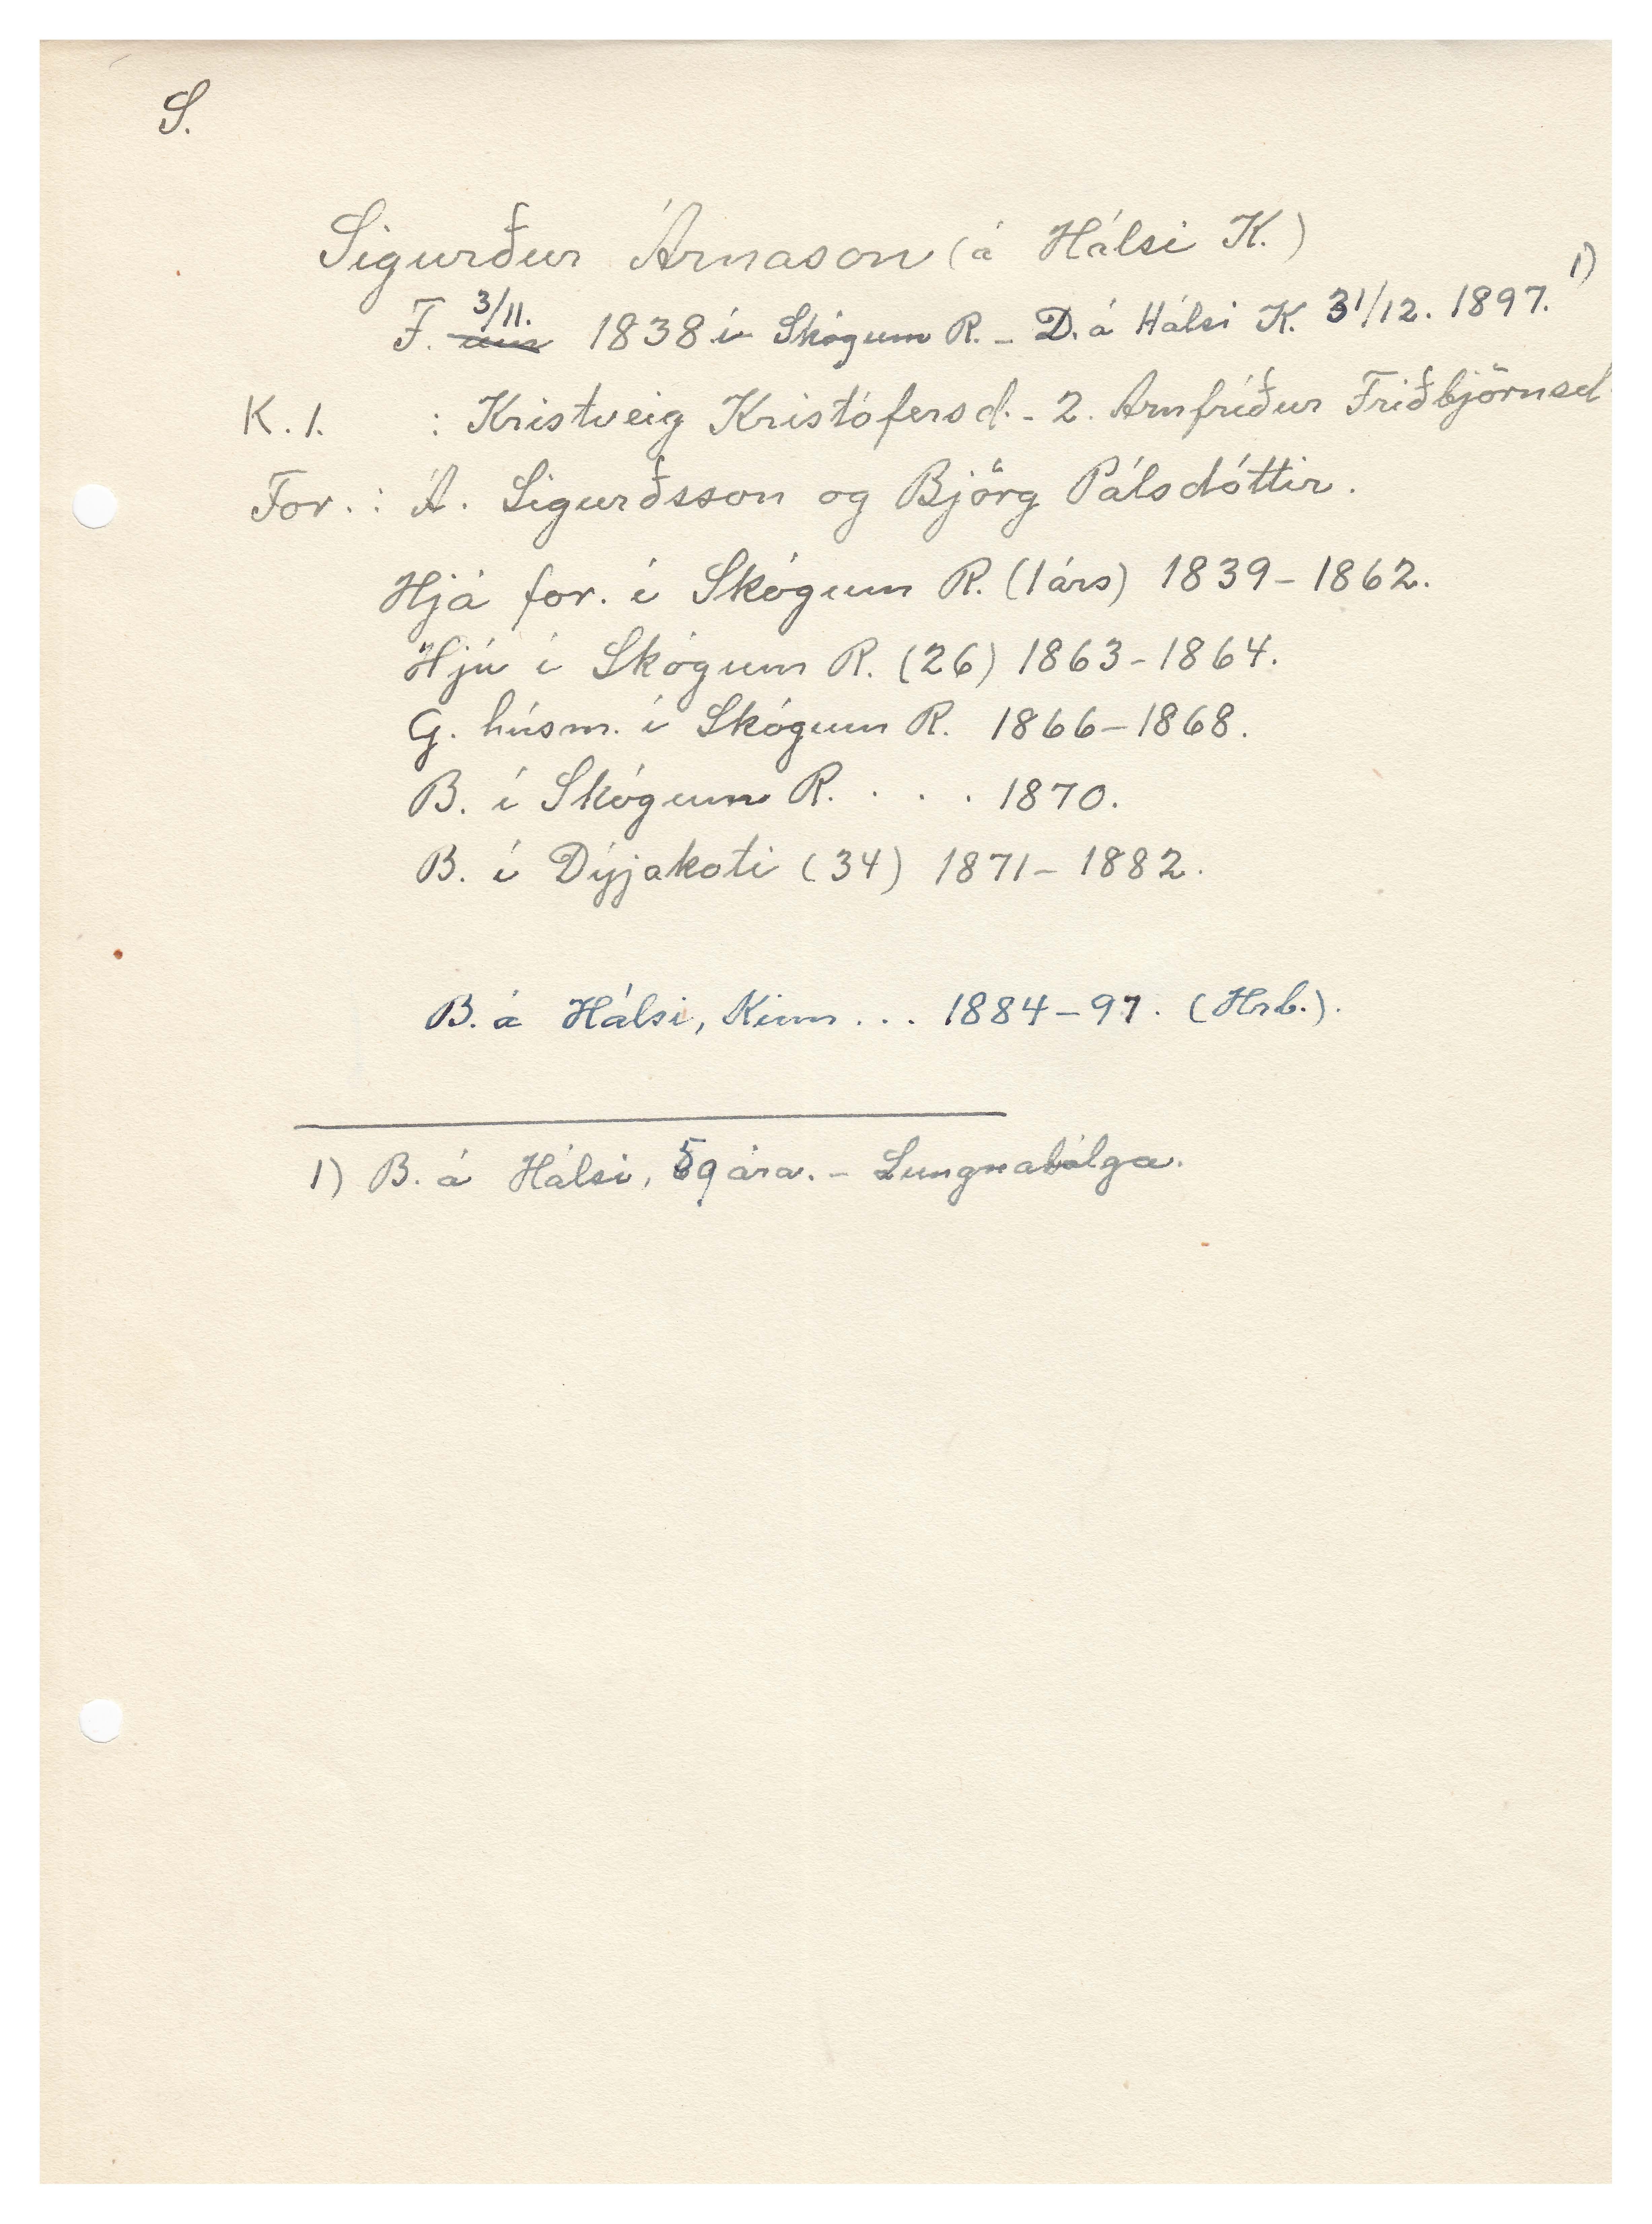 S.
Sigurður Árnason (á Hálsi K.)
F. 3/11. 1838 í Skógum R. - D. á Hálsi K. 31/12. 1897. 1)
K. 1. : Kristveig Kristófersd. - 2. Arnfríður Friðbjörnsd
For. : Á. Sigurðsson og Björg Pálsdóttir.
Hjá for. í Skógum R. (1 árs) 1839 - 1862.
Hjú í Skógum R. (26) 1863 - 1864.
G. húsm. í Skógum R. 1866 - 1868.
B. í Skógum R. . . . 1870.
B. í Dýjakoti (34) 1871 - 1882.
B. á Hálsi, Kinn . . . 1884 - 97. (Hrb.).
1) B. á Hálsi, 59 ára. - Lungnabólga.